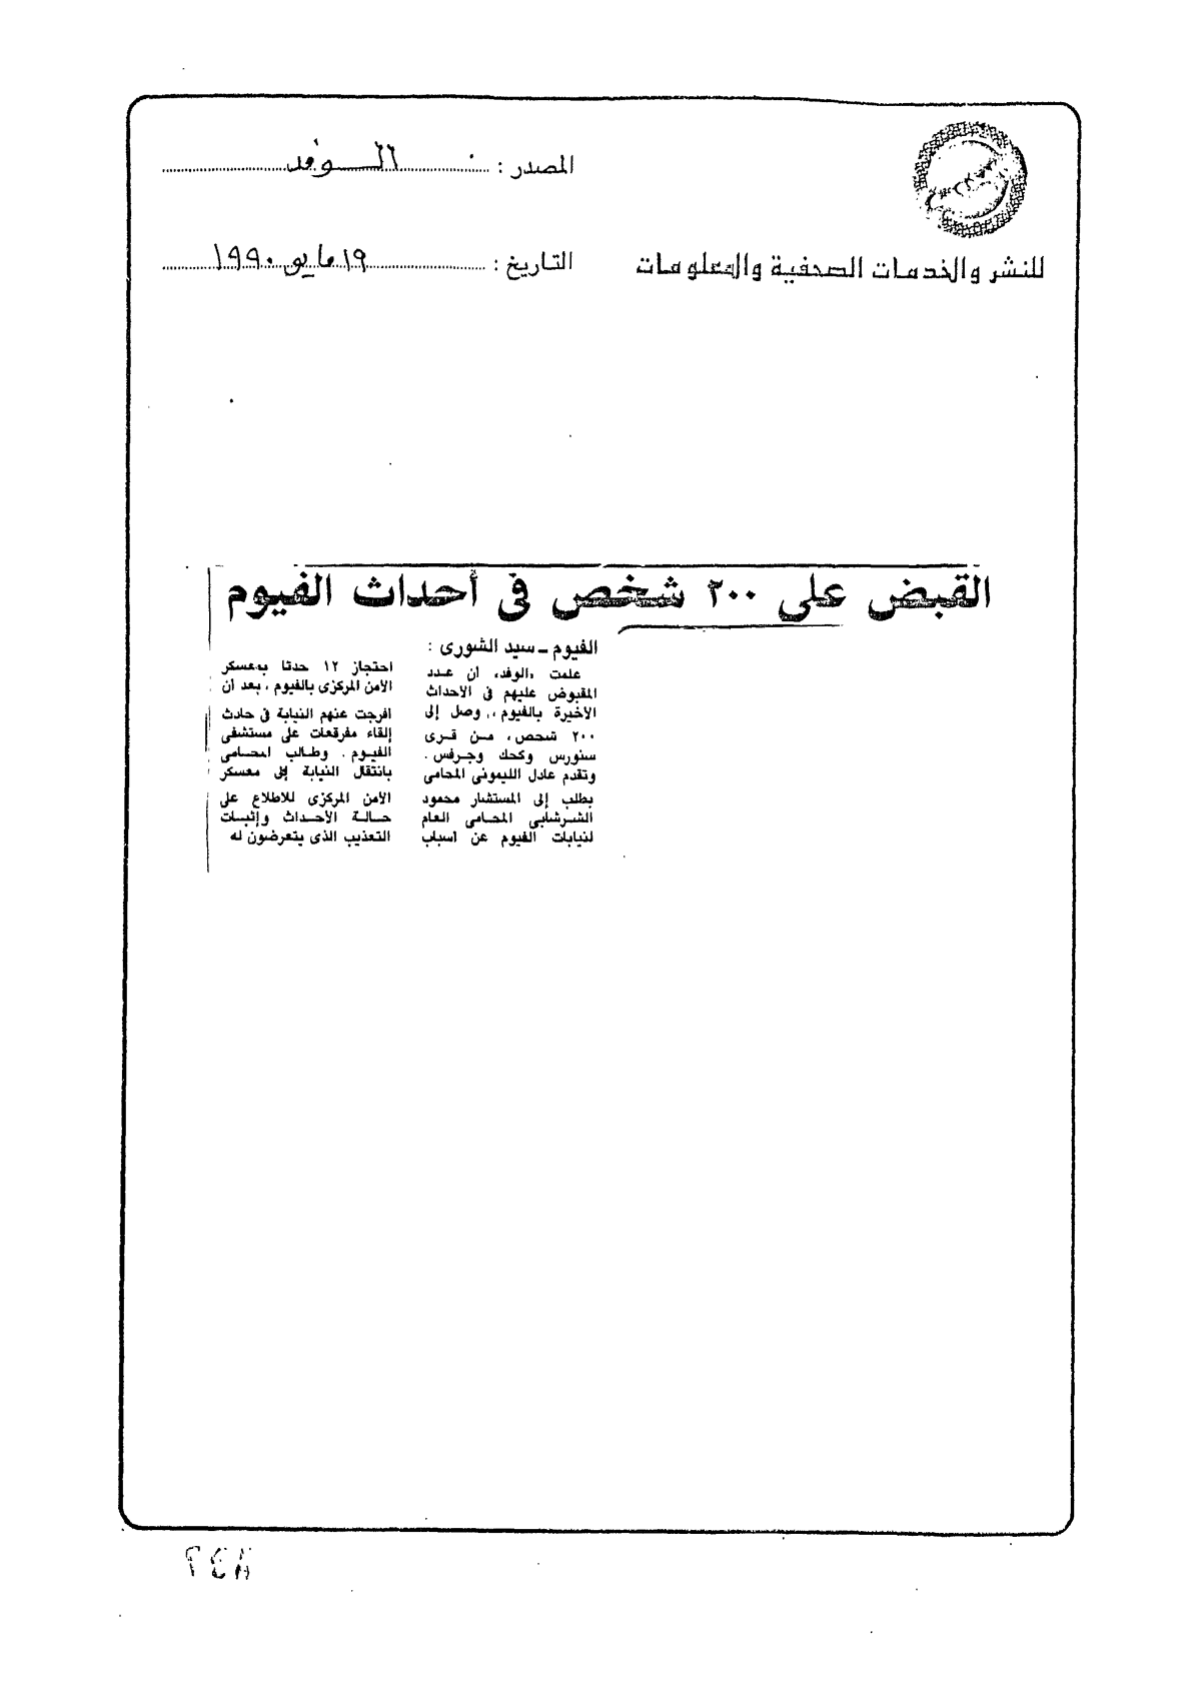 المصدر : الوفد
للنشر والخدمات الصحفية والمعلومات
التاريخ : ١٩ مايو ١٩٩٠
القبض على ٢٠٠ شخص فى أحداث الفيوم
الفيوم ــ سيد الشورى :
علمت «الوفد» ان عدد
المقبوض عليهم فى الأحداث
الأخيرة بالفيوم ،، وصل إلى
٢٠٠ شخص، من قرى
سنورس وكحك وجرفس .
وتقدم عادل الليمونى المحامى
بطلب إلى المستشار محمود
الشرشابى المحامى العام
لنيابات الفيوم عن أسباب
احتجاز ١٢ حدثا بمعسكر
الأمن المركزى بالفيوم ، بعد أن
أفرجت عنهم النيابة فى حادث
إلقاء مفرقعات على مستشفى
الفيوم . وطالب المحامى
بانتقال النيابة إلى معسكر
الأمن المركزى للاطلاع على
حالة الأحداث وإثبات
التعذيب الذى يتعرضون له